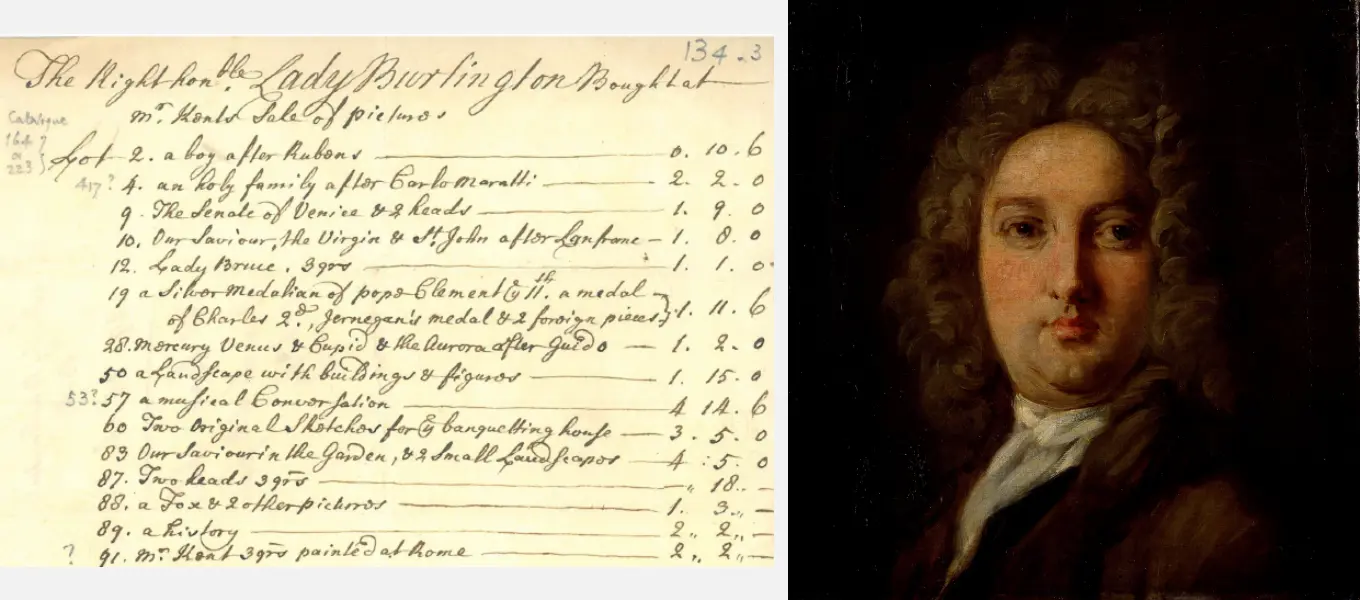 134-3
The Right hon.ble Lady Burlington Bought at
Mr. Kents Sale of pictures
Catalogue
164 ?
or
223 }
Lot 2. a boy after Rubens 0. 10. 6
417? 4. an holy family after Carlo Maratti 2. 2. 0
9. The Senate of Venice & 2 heads 1. 9. 0
10. Our Saviour, the Virgin & St. John after Lanfranc 1. 8. 0
12. Lady Bruce. 3qrs 1. 1. 0
19 a Silver Medalian of pope Clement ye 11th. a medal
of Charles 2d, Jernegan's medal & 2 foroign pieces } 1. 11. 6
28. Mercury Venus & Cupid & the Aurora after Guido 1. 2. 0
50 a Landscape with buildings & figures 1. 15. 0
53? 57 a musical Conversation 4 14. 6
60 Two Original Sketches for ye banquetting house 3. 5. 0
83 Our Saviour in the Garden, & 2 Small Landscapes 4 : 5. 0
87. Two heads 3qrs " 18.. -
88. a Fox & 2 other pictures 1. 3.,, -
89. a history 2,, 2,, -
? 91. Mr. Kent 3qrs painted at Rome 2,, 2,, -